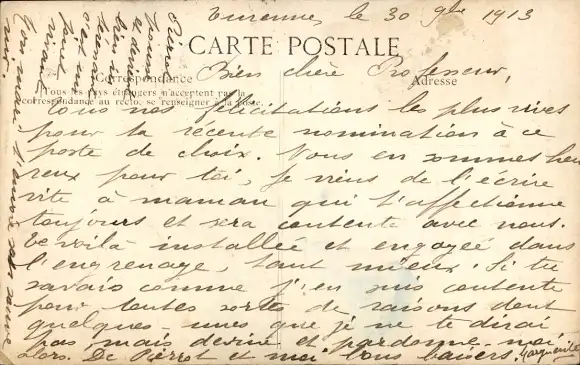 Turenne, le 30 9bre 1913
CARTE POSTALE
Correspondance
Adresse
Tous les pays étrangers n'acceptent pas la
correspondance au recto, se renseigner à la poste.
Bien chère Professeur,
tous nos félicitations les plus vives
pour ta récente nomination à ce
poste de choix. Nous en sommes heu
reux pour toi, je viens de l'écrire
vite à maman qui t'affectionne
toujours et sera contente avec nous.
te voilà installée et engagée dans
l'engrenage, tant mieux. Si tu
savais comme j'en suis contente
pour toutes sortes de raisons dont
quelques-unes que je ne te dirai
pas mais devine et pardonne-moi
alors. De Pierrot et moi bons baisers. Marguerite